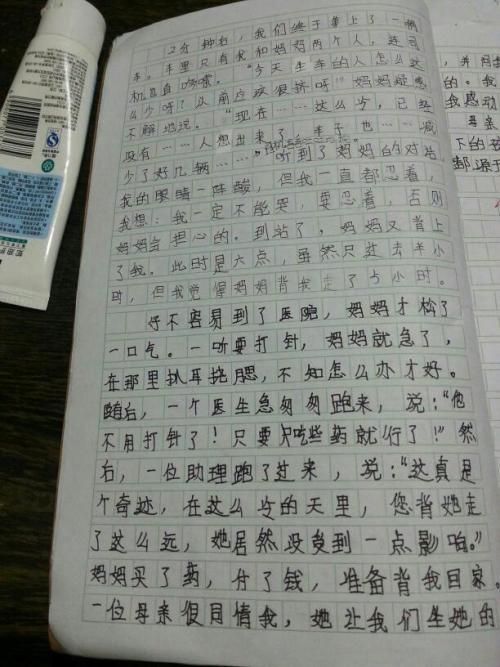 2分钟后，我们终于拿上了一辆
车。车里只有我和妈妈两个人，连司
机直直咳嗽。“今天坐车的人怎么这
么少呀？以前应该很挤呀！”妈妈疑惑
不解地说。“现在……这么冷，已经
没有……人想出来了，车子也……减
少了好几辆……”听到了妈妈的对话，
我的眼睛一阵酸，但我一直都忍着，
我想：我一定不能哭，要忍着，否则
妈妈会担心的。到站了，妈妈又背上
了我。此时是六点，虽然只过去半小
时，但我觉得妈妈背我走了5小时。
好不容易到了医院，妈妈才松了
一口气。一听要打针，妈妈就急了，
在那里扒耳挠腮，不知怎么办才好。
随后，一个医生急匆匆跑来，说：“他
不用打针了！只要只吃些药就行了！”然
后，一位助理跑了过来，说：“这真是
个奇迹，在这么冷的天里，您背她走
了这么远，她居然没受到一点影响。”
妈妈买了药，付了钱，准备背我回家。
一位母亲很同情我，她让我们坐她的
，并用
的。我
我感动
母亲
下的
都源于